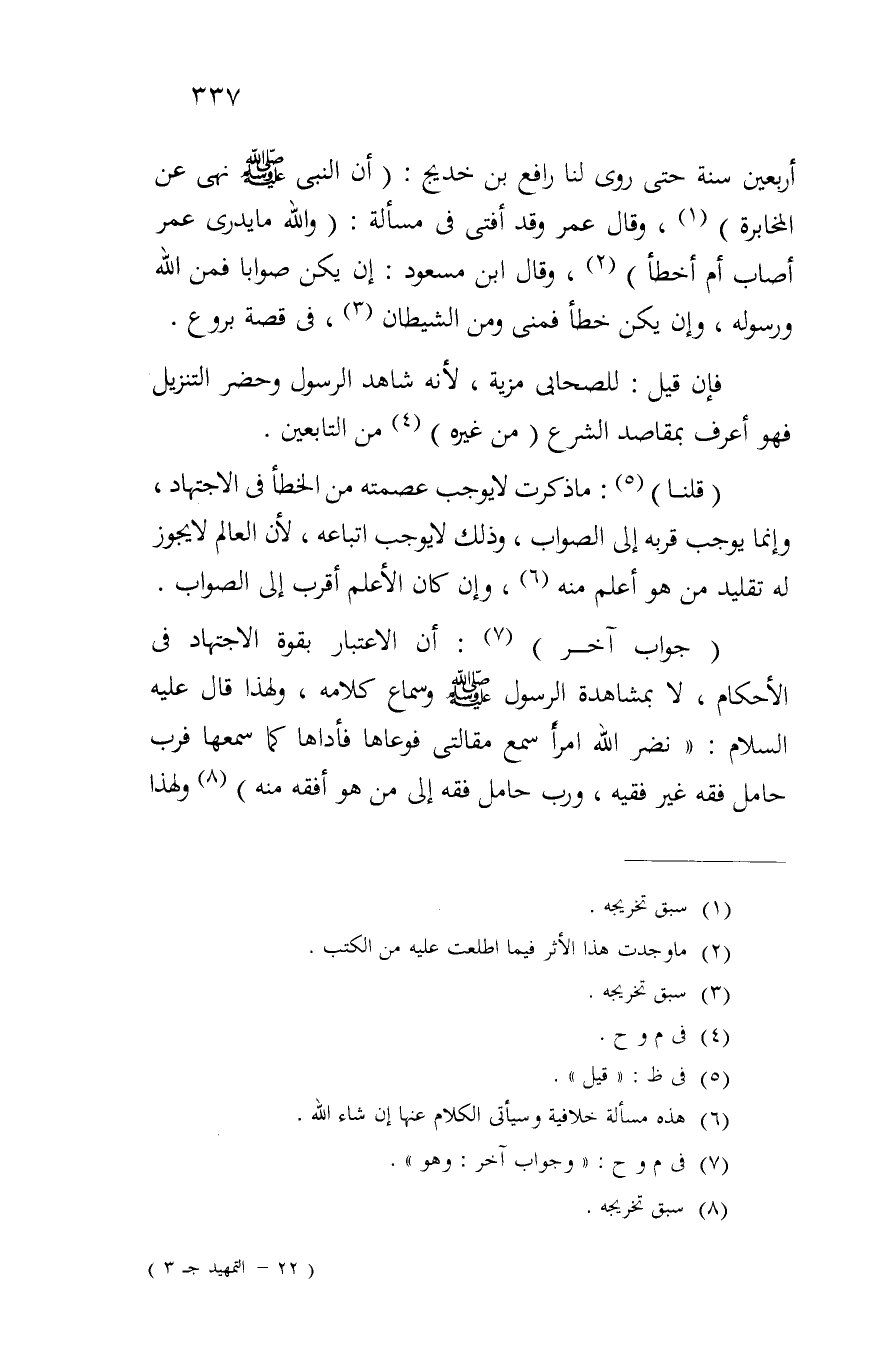 ٣٣٧
أربعين سنة حتى روى لنا رافع بن خديج : ( أن النبى ﷺ نهى عن
المخابرة ) (١) ، وقال عمر وقد أفتى فى مسألة : ( والله مايدرى عمر
أصاب أم أخطأ ) (٢) ، وقال ابن مسعود : إن يكن صوابا فمن الله
ورسوله ، وإن يكن خطأ فمنى ومن الشيطان (٣) ، فى قصة بروع .
فإن قيل : للصحابى مزية ، لأنه شاهد الرسول وحضر التنزيل
فهو أعرف بمقاصد الشرع ( من غيره ) (٤) من التابعين .
( قلنـا ) (٥) : ماذكرت لايوجب عصمته من الخطأ فى الاجتهاد ،
وإنما يوجب قربه إلى الصواب ، وذلك لايوجب اتباعه ، لأن العالم لايجوز
له تقليد من هو أعلم منه (٦) ، وإن كان الأعلم أقرب إلى الصواب .
( جواب آخـر ) (٧) : أن الاعتبار بقوة الاجتهاد فى
الأحكام ، لا بمشاهدة الرسول ﷺ وسماع كلامه ، ولهذا قال عليه
السلام : « نضر الله امرأ سمع مقالتى فوعاها فأداها كما سمعها فرب
حامل فقه غير فقيه ، ورب حامل فقه إلى من هو أفقه منه ) (٨) ولهذا
(١) سبق تخريجه .
(٢) ماوجدت هذا الأثر فيما اطلعت عليه من الكتب .
(٣) سبق تخريجه .
(٤) فى م و ح .
(٥) فى ظ : « قيل » .
(٦) هذه مسألة خلافية وسيأتى الكلام عنها إن شاء الله .
(٧) فى م و ح : « وجواب آخر : وهو » .
(٨) سبق تخريجه .
( ٢٢ – التمهيد جـ ٣ )